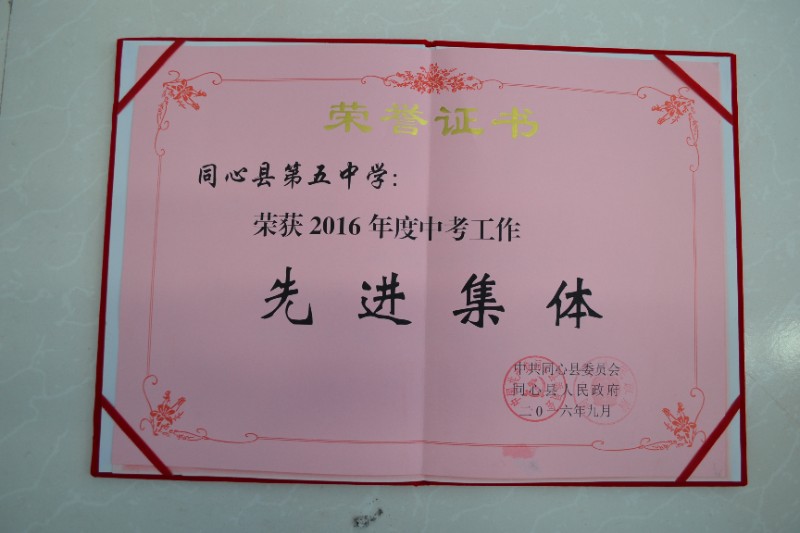 荣誉证书
同心县第五中学：
荣获2016年度中考工作
先进集体
中共同心县委员会
同心县人民政府
二〇一六年九月